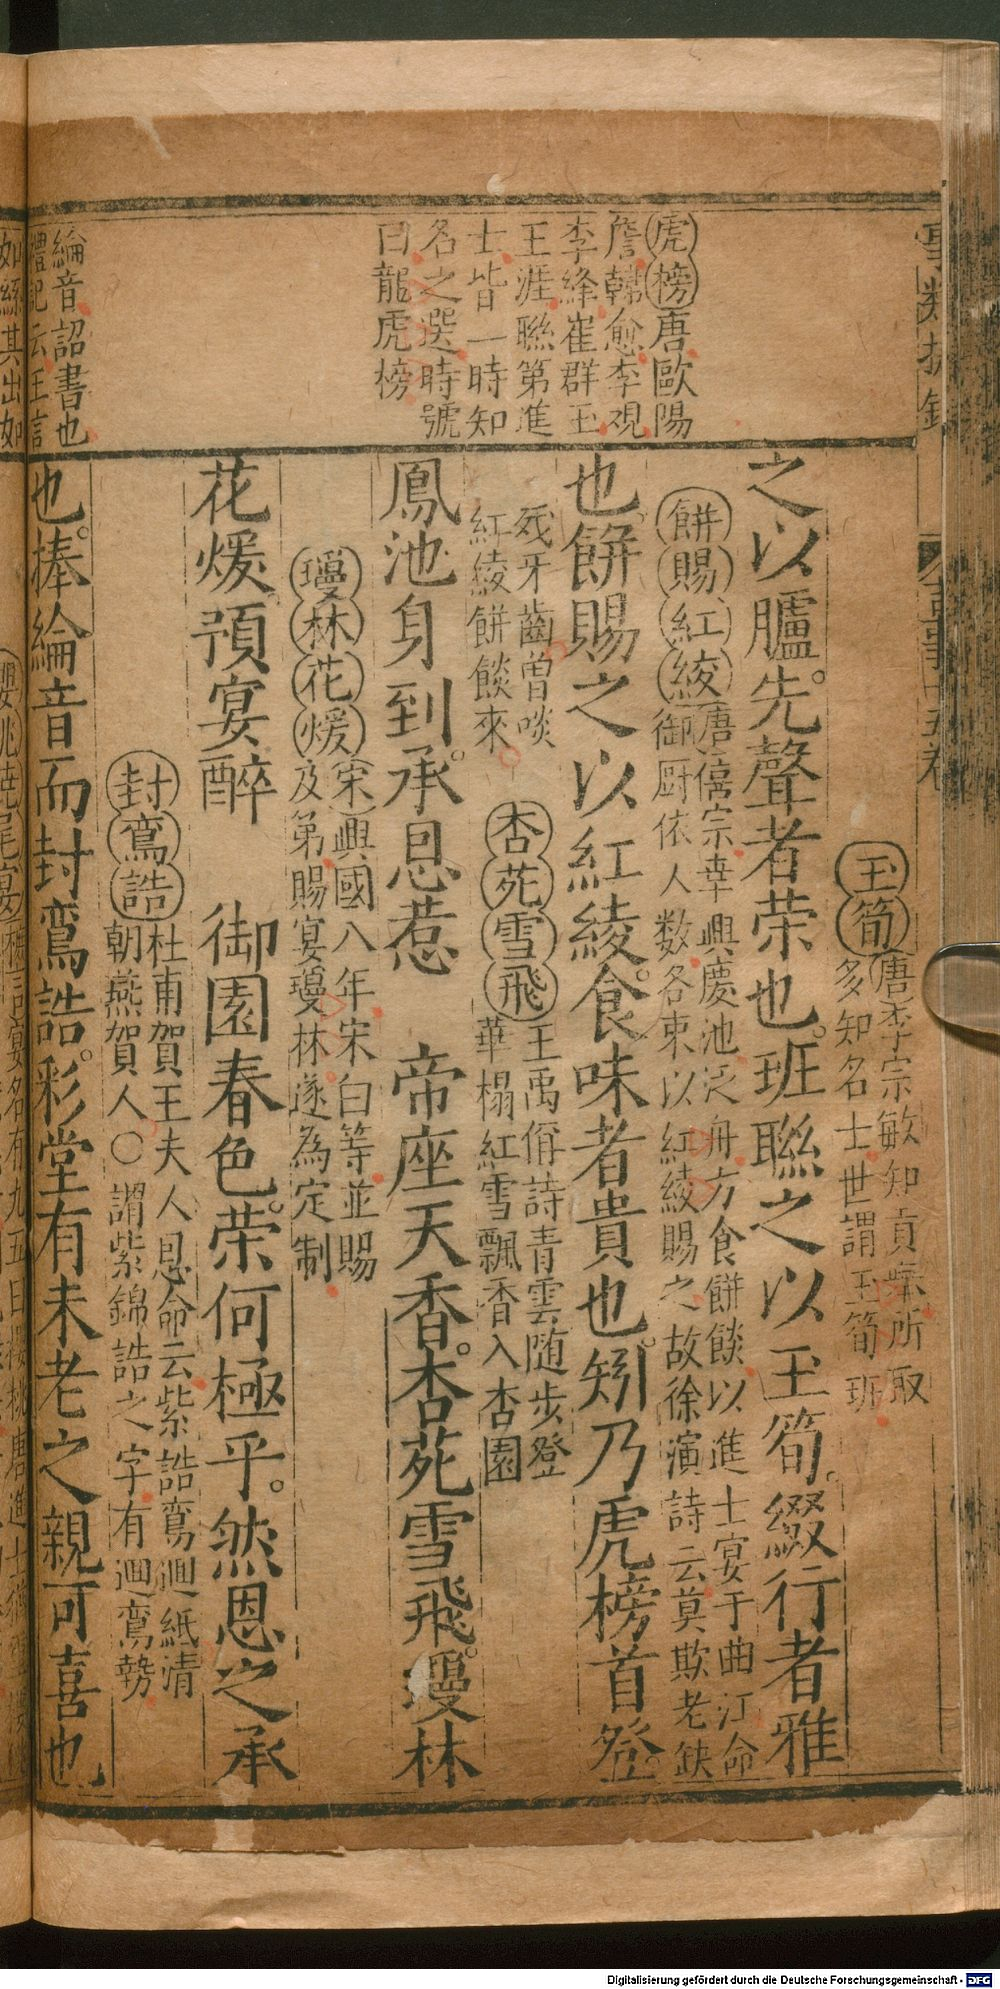 虎榜唐歐陽
詹韓愈李观
李絳崔群王
王涯聯第進
士皆一時知
名之選時號
曰龍虎榜
綸音詔書也
禮記云王言
如絲其出如
玉筍唐李宗敏知貢舉所取
多知名士世謂玉筍班
之以臚先聲者荣也班聯之以玉筍綴行者雅
餅賜紅綾唐僖宗幸興慶池泛舟方食餅餤以進士宴于曲江命
御厨依人数各束以紅綾賜之故徐演詩云莫欺老缺
也餅賜之以紅綾食味者貴也矧乃虎榜首登
残牙齒曽啖
紅綾餅餤來
杏苑雪飛王禹偁詩青雲随步登
華榻紅雪飄香入杏園
鳳池身到承恩惹 帝座天香杏苑雪飛瓊林
瓊林花煖宋興國八年宋白等並賜
及第賜宴瓊林遂為定制
花煖預宴醉 御園春色荣何極乎然恩之承
封鸞誥杜甫賀王夫人恩命云紫誥鸞迴紙清
朝燕賀人〇謂紫錦誥之字有迴鸞勢
也捧綸音而封鸞誥彩堂有未老之親可喜也
Digitalisierung gefördert durch die Deutsche Forschungsgemeinschaft - DFG